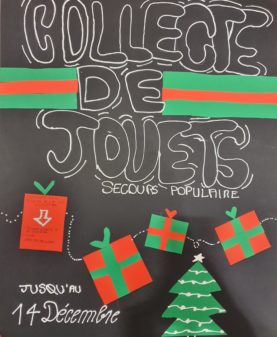 COLLECTE
DE
JOUETS
SECOURS POPULAIRE
JUSQU'AU
14 Décembre